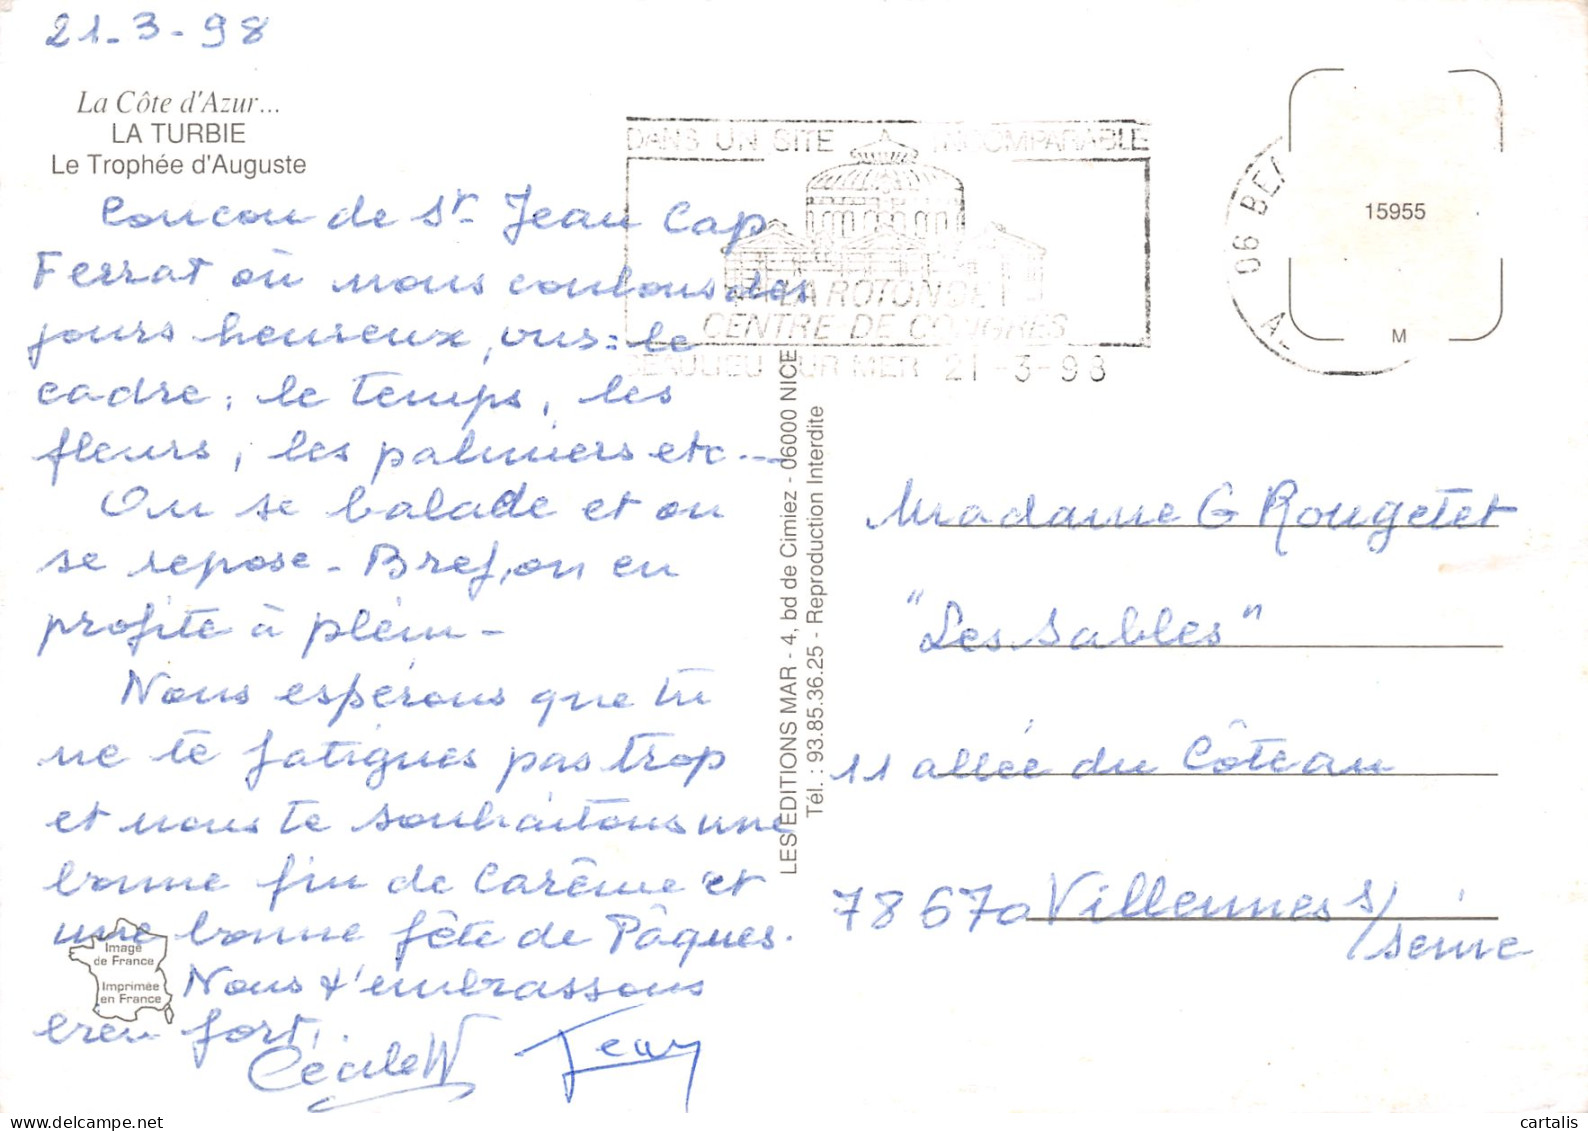 21-3-98
La Côte d'Azur...
LA TURBIE
Le Trophée d'Auguste
Coucou de St Jean Cap
Ferrat où nous coulons des
jours heureux, vus : le
cadre, le temps, les
fleurs, les palmiers etc...
On se balade et on
se repose - Bref, on en
profite à plein -
Nous espérons que tu
ne te fatigues pas trop
et nous te souhaitons une
bonne fin de Carême et
une bonne fête de Pâques.
Nous t'embrassons
bien fort.
CécileW Jean
Image
de France
Imprimée
en France
LES EDITIONS MAR - 4, bd de Cimiez - 06000 NICE
Tél. : 93.85.36.25 - Reproduction Interdite
DANS UN SITE INCOMPARABLE
LA ROTONDE
CENTRE DE CONGRES
BEAULIEU SUR MER 21-3-98
06 BEA
A-
15955
M
Madame G Rougetet
"Les Sables"
11 allée du Côteau
78670 Villennes s/
seine
cartalis